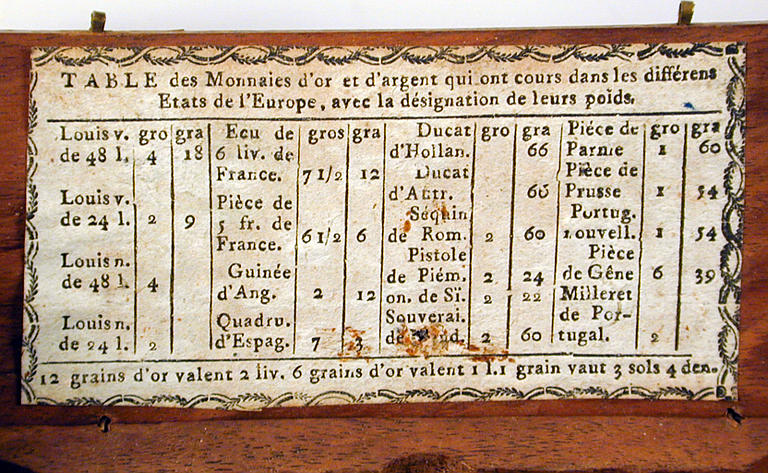 TABLE des Monnaies d'or et d'argent qui ont cours dans les différens
Etats de l'Europe, avec la désignation de leurs poids.
Louis v. gro gra Ecu de gros gra Ducat gro gra Piéce de gro gra
de 48 l. 4 18 6 liv. de d'Hollan. 66 Parme 1 60
France. 7 1/2 12 Ducat Pièce de
d'Autr. 65 Prusse 1 54
Louis v. Pièce de Sequin Portug.
de 24 l. 2 9 5 fr. de de Rom. 2 60 nouvell. 1 54
France. 6 1/2 6 Pistole Pièce
Louis n. Guinée de Piém. 2 24 de Gêne 6 39
de 48 l. 4 d'Ang. 2 12 on. de Sï. 2 22 Milleret
Louis n. Quadru. Souverai. de Por-
de 24 l. 2 d'Espag. 7 3 de 2 60 tugal. 2
12 grains d'or valent 2 liv. 6 grains d'or valent 1 l. 1 grain vaut 3 sols 4 den.